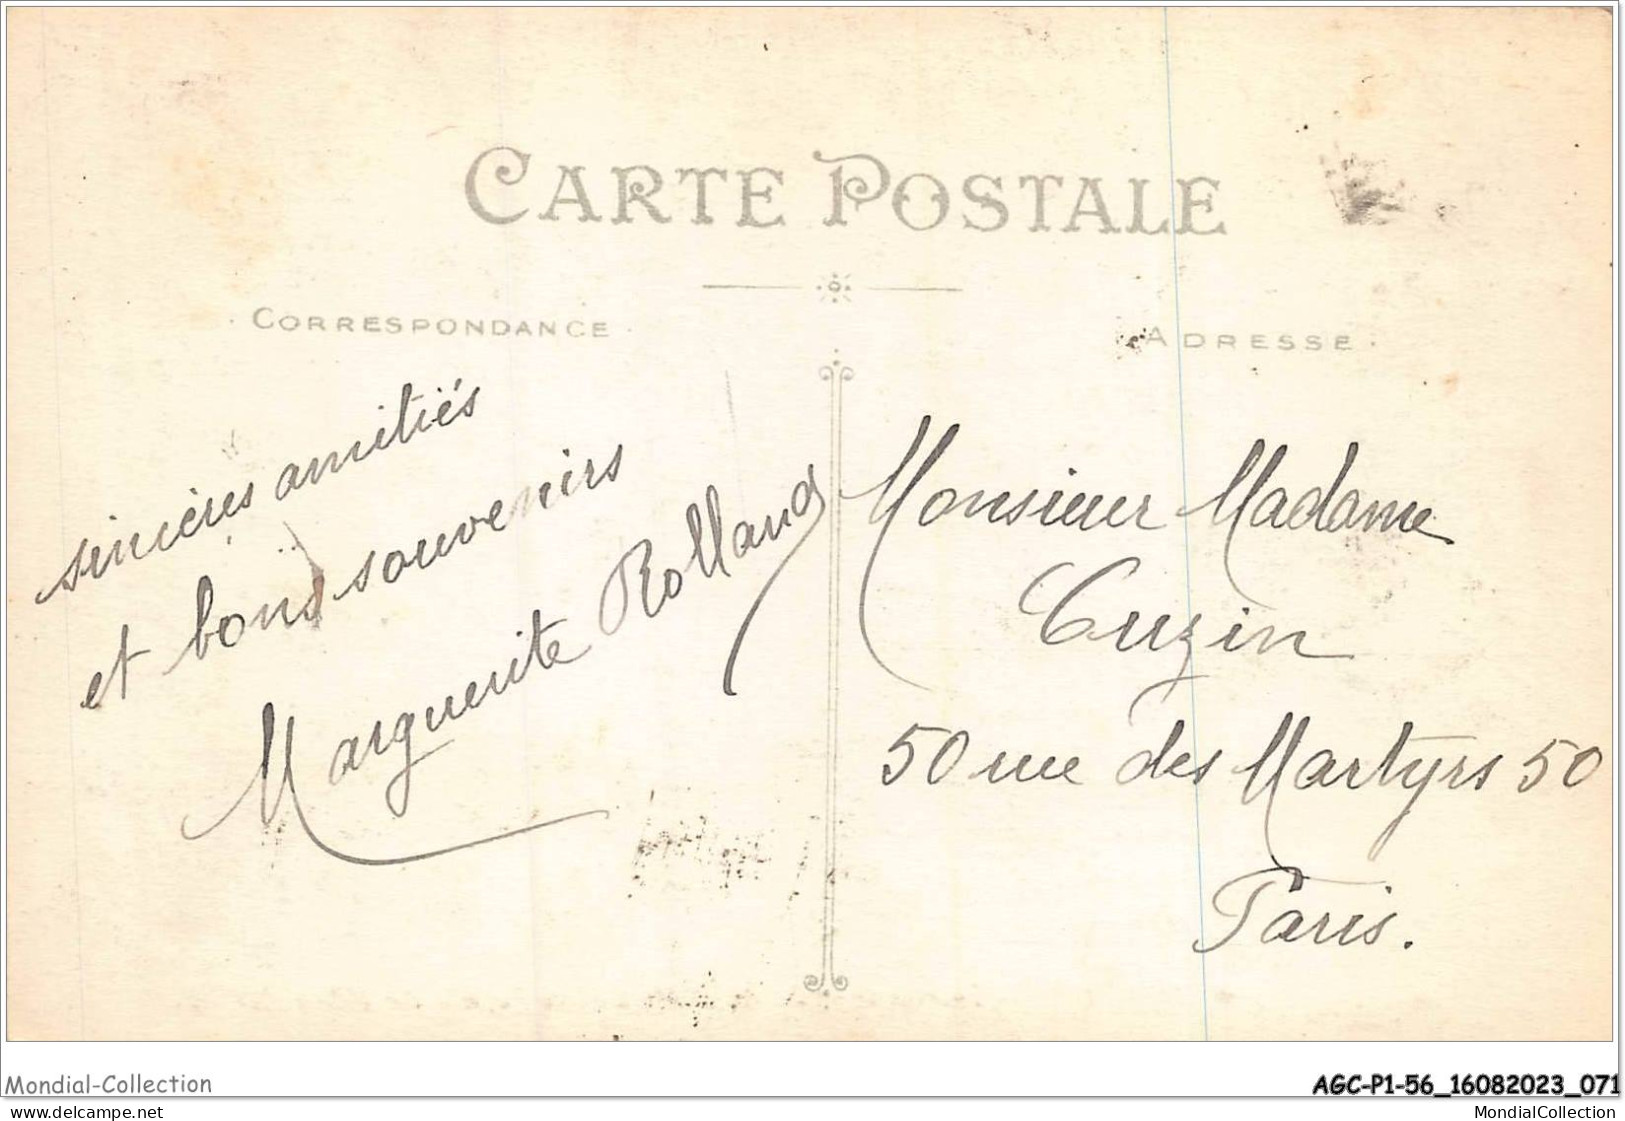 CARTE POSTALE
CORRESPONDANCE
ADRESSE
sincères amitiés
et bons souvenirs
Marguerite Rolland
Monsieur Madame
Cuzin
50 rue des Martyrs 50
Paris.
Mondial-Collection
AGC-P1-56_16082023_071
www.delcampe.net
MondialCollection